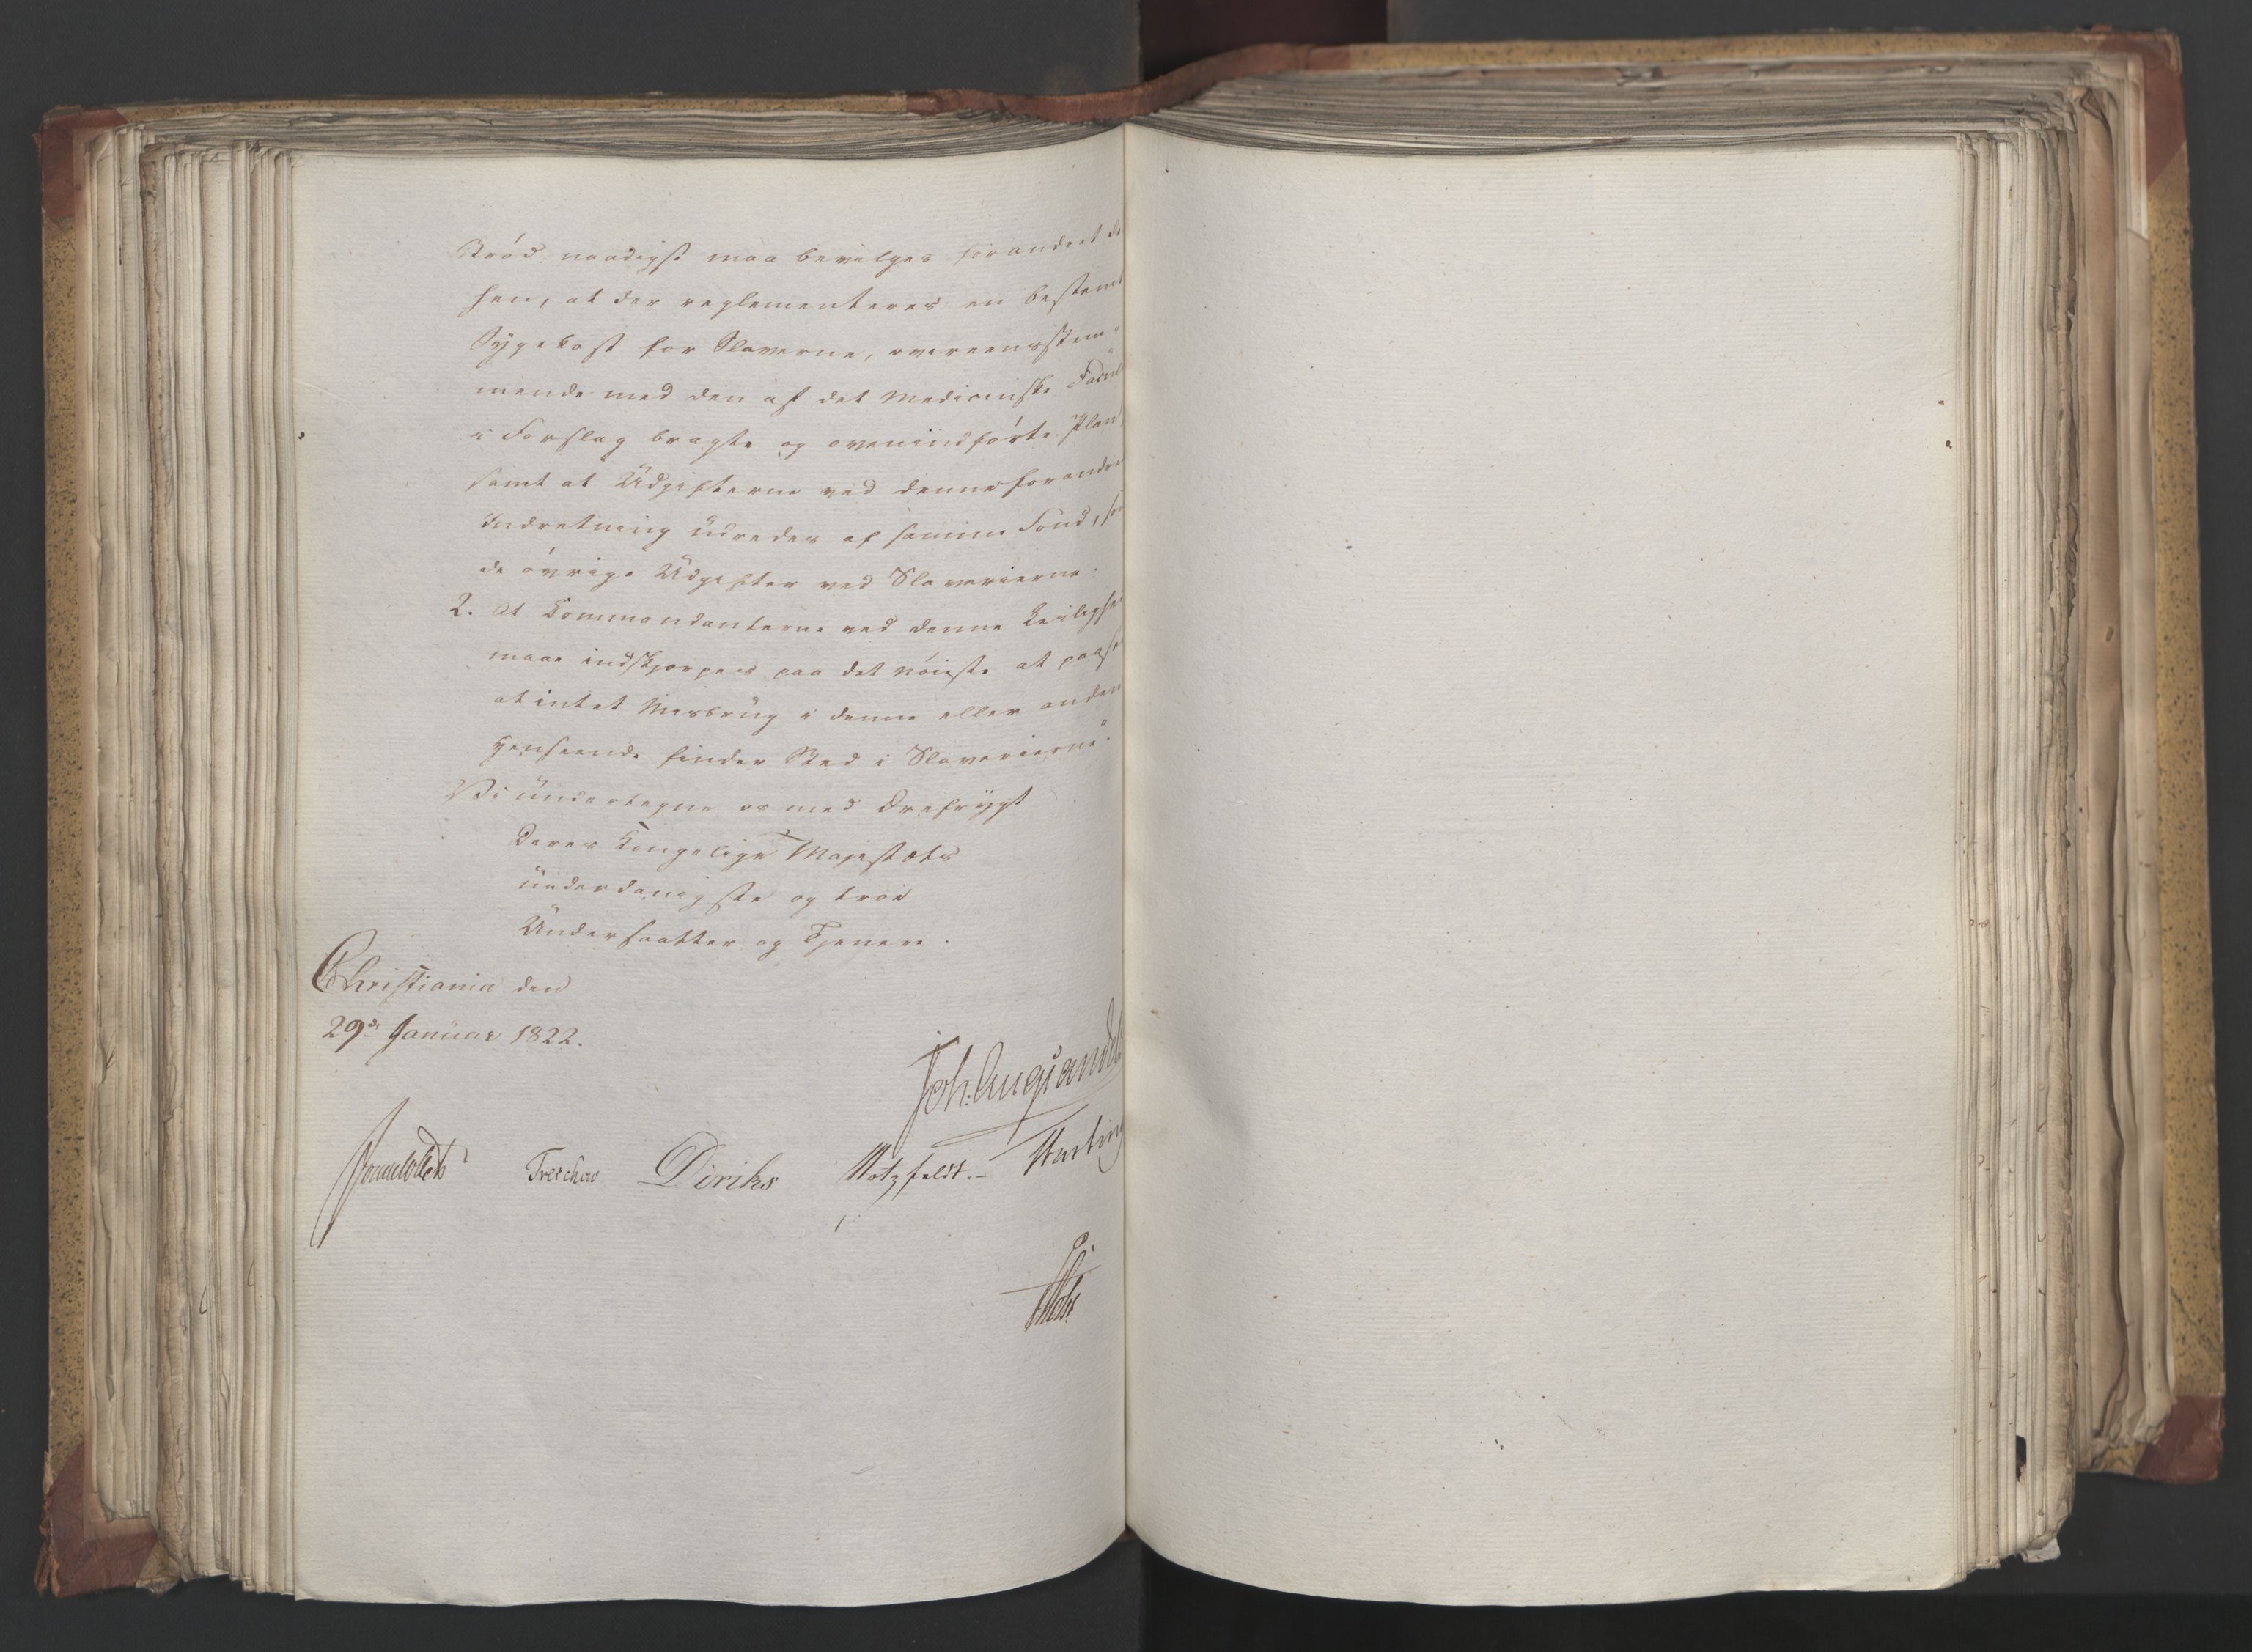 Brød naadigst maa bevilges forandret de
hen, at der reglementeres en bestemt
Sygekost for Slaverne, overeensstem-
mende med den af det Medicinske Facul
i Forslag bragte og ovenindførte Plan,
samt at Udgifterne ved denne forandre
Indretning udredes af samme Fond, so
de øvrige Udgifter ved Slaverierne.
2. At Commandanterne ved denne Leilighe
maae indskjærpes paa det nøieste at paase
at intet Misbrug i denne eller anden
Henseende finder Sted i Slaverierne."
Vi undertegne os med Ærefrygt
Deres Kongelige Majestæts
underdanigste og troe
Undersaatter og Tjenere.
Christiania den
29de Januar 1822.
Joh: Aug: Sandels
Sommerhielm Treschow Diriks Motzfeldt.- Hasting
Holst